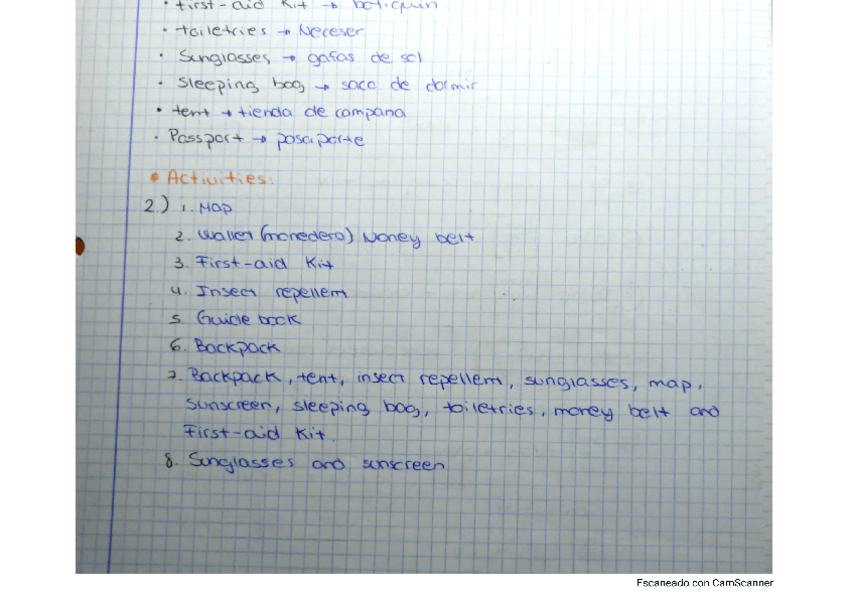 · First-aid Kit → botiquín
· toiletries → Neceser
· Sunglasses → gafas de sol
· Sleeping bag → saco de dormir
· tent → tienda de campana
· Passport → pasaporte
• Activities:
2.) 1. Map
2. Wallet (monedero) Money belt
3. First-aid Kit
4. Insect repellent
5. Guide book
6. Backpack
7. Backpack, tent, insect repellent, sunglasses, map,
sunscreen, sleeping bag, toiletries, money belt and
First-aid Kit.
8. Sunglasses and sunscreen
Escaneado con CamScanner